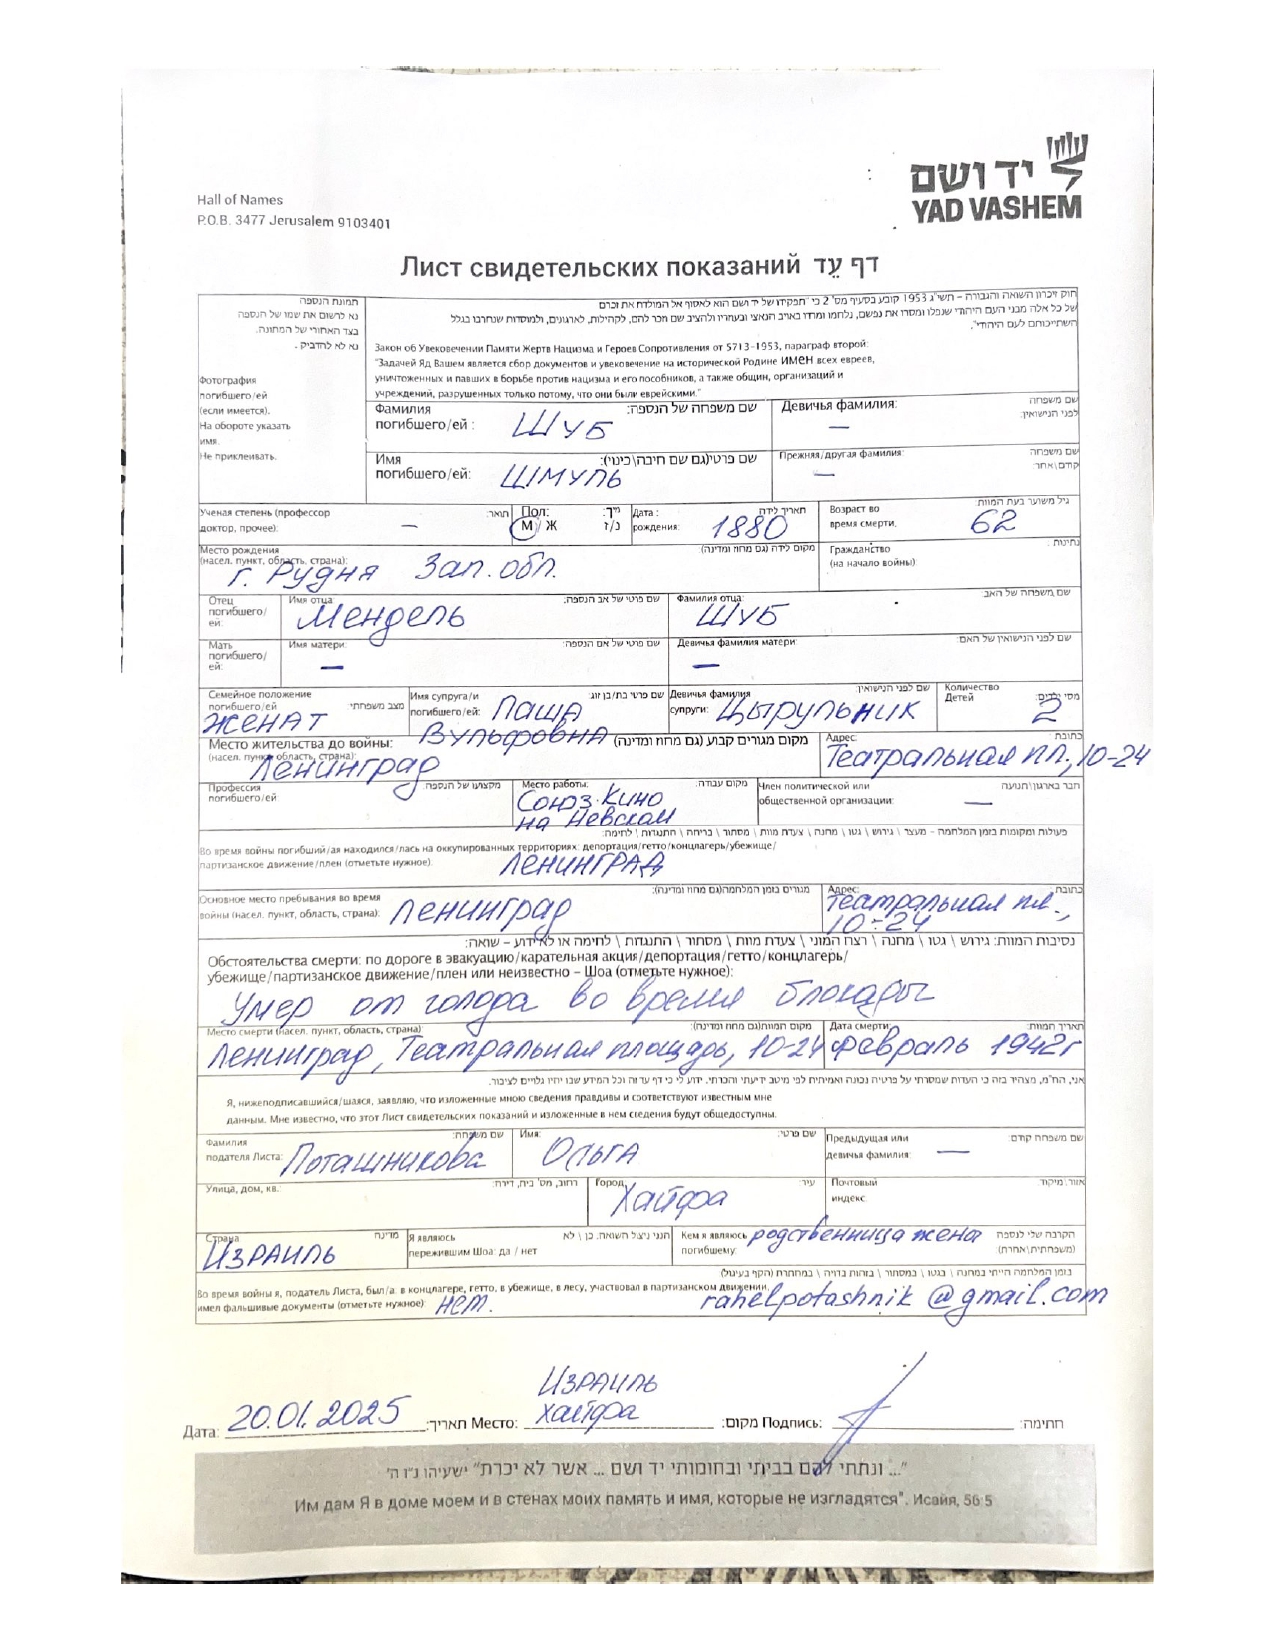 Hall of Names
P.O.B. 3477 Jerusalem 9103401
יד ושם
YAD VASHEM
Лист свидетельских показаний דף עֵד
תמונת הנספה
נא לרשום את שמו של הנספה
בצד האחורי של התמונה.
נא לא להדביק.
Фотография
погибшего/ей
(если имеется).
На обороте указать
имя.
Не приклеивать.
חוק זיכרון השואה והגבורה – תשי"ג 1953 קובע בסעיף מס' 2 כי "תפקידו של יד ושם הוא לאסוף אל המולדת את זכרם
של כל אלה מבני העם היהודי שנפלו ומסרו את נפשם, נלחמו ומרדו באויב הנאצי ובעוזריו ולהציב שם וזכר להם, לקהילות, לארגונים, ולמוסדות שנחרבו בגלל
השתייכותם לעם היהודי".
Закон об Увековечении Памяти Жертв Нацизма и Героев Сопротивления от 5713-1953, параграф второй:
"Задачей Яд Вашем является сбор документов и увековечение на исторической Родине имен всех евреев,
уничтоженных и павших в борьбе против нацизма и его пособников, а также общин, организаций и
учреждений, разрушенных только потому, что они были еврейскими."
Фамилия погибшего/ей : שם משפחה של הנספה: Шуб
Девичья фамилия: שם משפחה לפני הנישואין: —
Имя погибшего/ей: שם פרטי(גם שם חיבה\כינוי): Шмуль
Прежняя/другая фамилия: שם משפחה קודם\אחר: —
Ученая степень (профессор доктор, прочее): תואר: —
Пол: М/ Ж מין: ז/נ
Дата рождения: תאריך לידה 1880
Возраст во время смерти, גיל משוער בעת המוות: 62
Место рождения (насел. пункт, область, страна): מקום לידה (גם מחוז ומדינה): г. Рудня Зап. обл.
Гражданство (на начало войны) נתינות:
Отец погибшего/ей: Имя отца: שם פרטי של אב הנספה: Мендель
Фамилия отца: שם משפחה של האב: Шуб
Мать погибшего/ей: Имя матери: שם פרטי של אם הנספה: —
Девичья фамилия матери: שם לפני הנישואין של האם: —
Семейное положение погибшего/ей מצב משפחתי: женат
Имя супруга/и погибшего/ей: שם פרטי בת/בן זוג Паша Вульфовна
Девичья фамилия супруги: שם לפני הנישואין: Цырульник
Количество Детей מס' ילדים: 2
Место жительства до войны: (насел. пункт, область, страна): מקום מגורים קבוע (גם מחוז ומדינה) Ленинград
Адрес: כתובת Театральная пл., 10-24
Профессия погибшего/ей: מקצועו של הנספה:
Место работы: מקום עבודה: Союз.Кино на Невском
Член политической или общественной организации: חבר בארגון\תנועה —
פעילות ומקומות בזמן המלחמה – מעצר \ גירוש \ גטו \ מחנה \ צעדת מוות \ מסתור \ בריחה \ התנגדות \ לחימה:
Во время войны погибший/ая находился/лась на оккупированных территориях: депортация/гетто/концлагерь/убежище/
партизанское движение/плен (отметьте нужное): Ленинград
Основное место пребывания во время войны (насел. пункт, область, страна): מגורים בזמן המלחמה(גם מחוז ומדינה): Ленинград
Адрес: כתובת Театральная пл., 10-24
נסיבות המוות: גירוש \ גטו \ מחנה \ רצח המוני \ צעדת מוות \ מסתור \ התנגדות \ לחימה או לא ידוע – שואה:
Обстоятельства смерти: по дороге в эвакуацию/карательная акция/депортация/гетто/концлагерь/
убежище/партизанское движение/плен или неизвестно – Шоа (отметьте нужное):
Умер от голода во время блокады
Место смерти (насел. пункт, область, страна): מקום המוות(גם מחוז ומדינה): Ленинград, Театральная площадь, 10-24
Дата смерти: תאריך המוות: февраль 1942г
אני, הח"מ, מצהיר בזה כי העדות שמסרתי על פרטיה נכונה ואמיתית לפי מיטב ידיעתי והכרתי. ידוע לי כי דף עד זה וכל המידע שבו יהיו גלויים לציבור.
Я, нижеподписавшийся/шаяся, заявляю, что изложенные мною сведения правдивы и соответствуют известным мне
данным. Мне известно, что этот Лист свидетельских показаний и изложенные в нем сведения будут общедоступны.
Фамилия подателя Листа: שם משפחה: Поташникова
Имя: שם פרטי: Ольга
Предыдущая или девичья фамилия: שם משפחה קודם: —
Улица, дом, кв.: רחוב, מס' בית, דירה:
Город, עיר: Хайфа
Почтовый индекс אזור\מיקוד:
Страна מדינה Израиль
Я являюсь пережившим Шоа: да / нет הנני ניצל השואה: כן \ לא
Кем я являюсь погибшему: הקרבה שלי לנספה (משפחתית\אחרת): родственница жены
בזמן המלחמה הייתי במחנה \ בגטו \ במסתור \ בזהות בדויה \ במחתרת (הקף בעיגול)
Во время войны я, податель Листа, был/а: в концлагере, гетто, в убежище, в лесу, участвовал в партизанском движении,
имел фальшивые документы (отметьте нужное): нет. rahelpotashnik@gmail.com
Израиль
Дата: 20.01.2025 תאריך: Место: Хайфа מקום: Подпись: חתימה:
"... ונתתי להם בביתי ובחומותי יד ושם ... אשר לא יכרת" ישעיהו נ"ו ה'
Им дам Я в доме моем и в стенах моих память и имя, которые не изгладятся". Исайя, 56:5